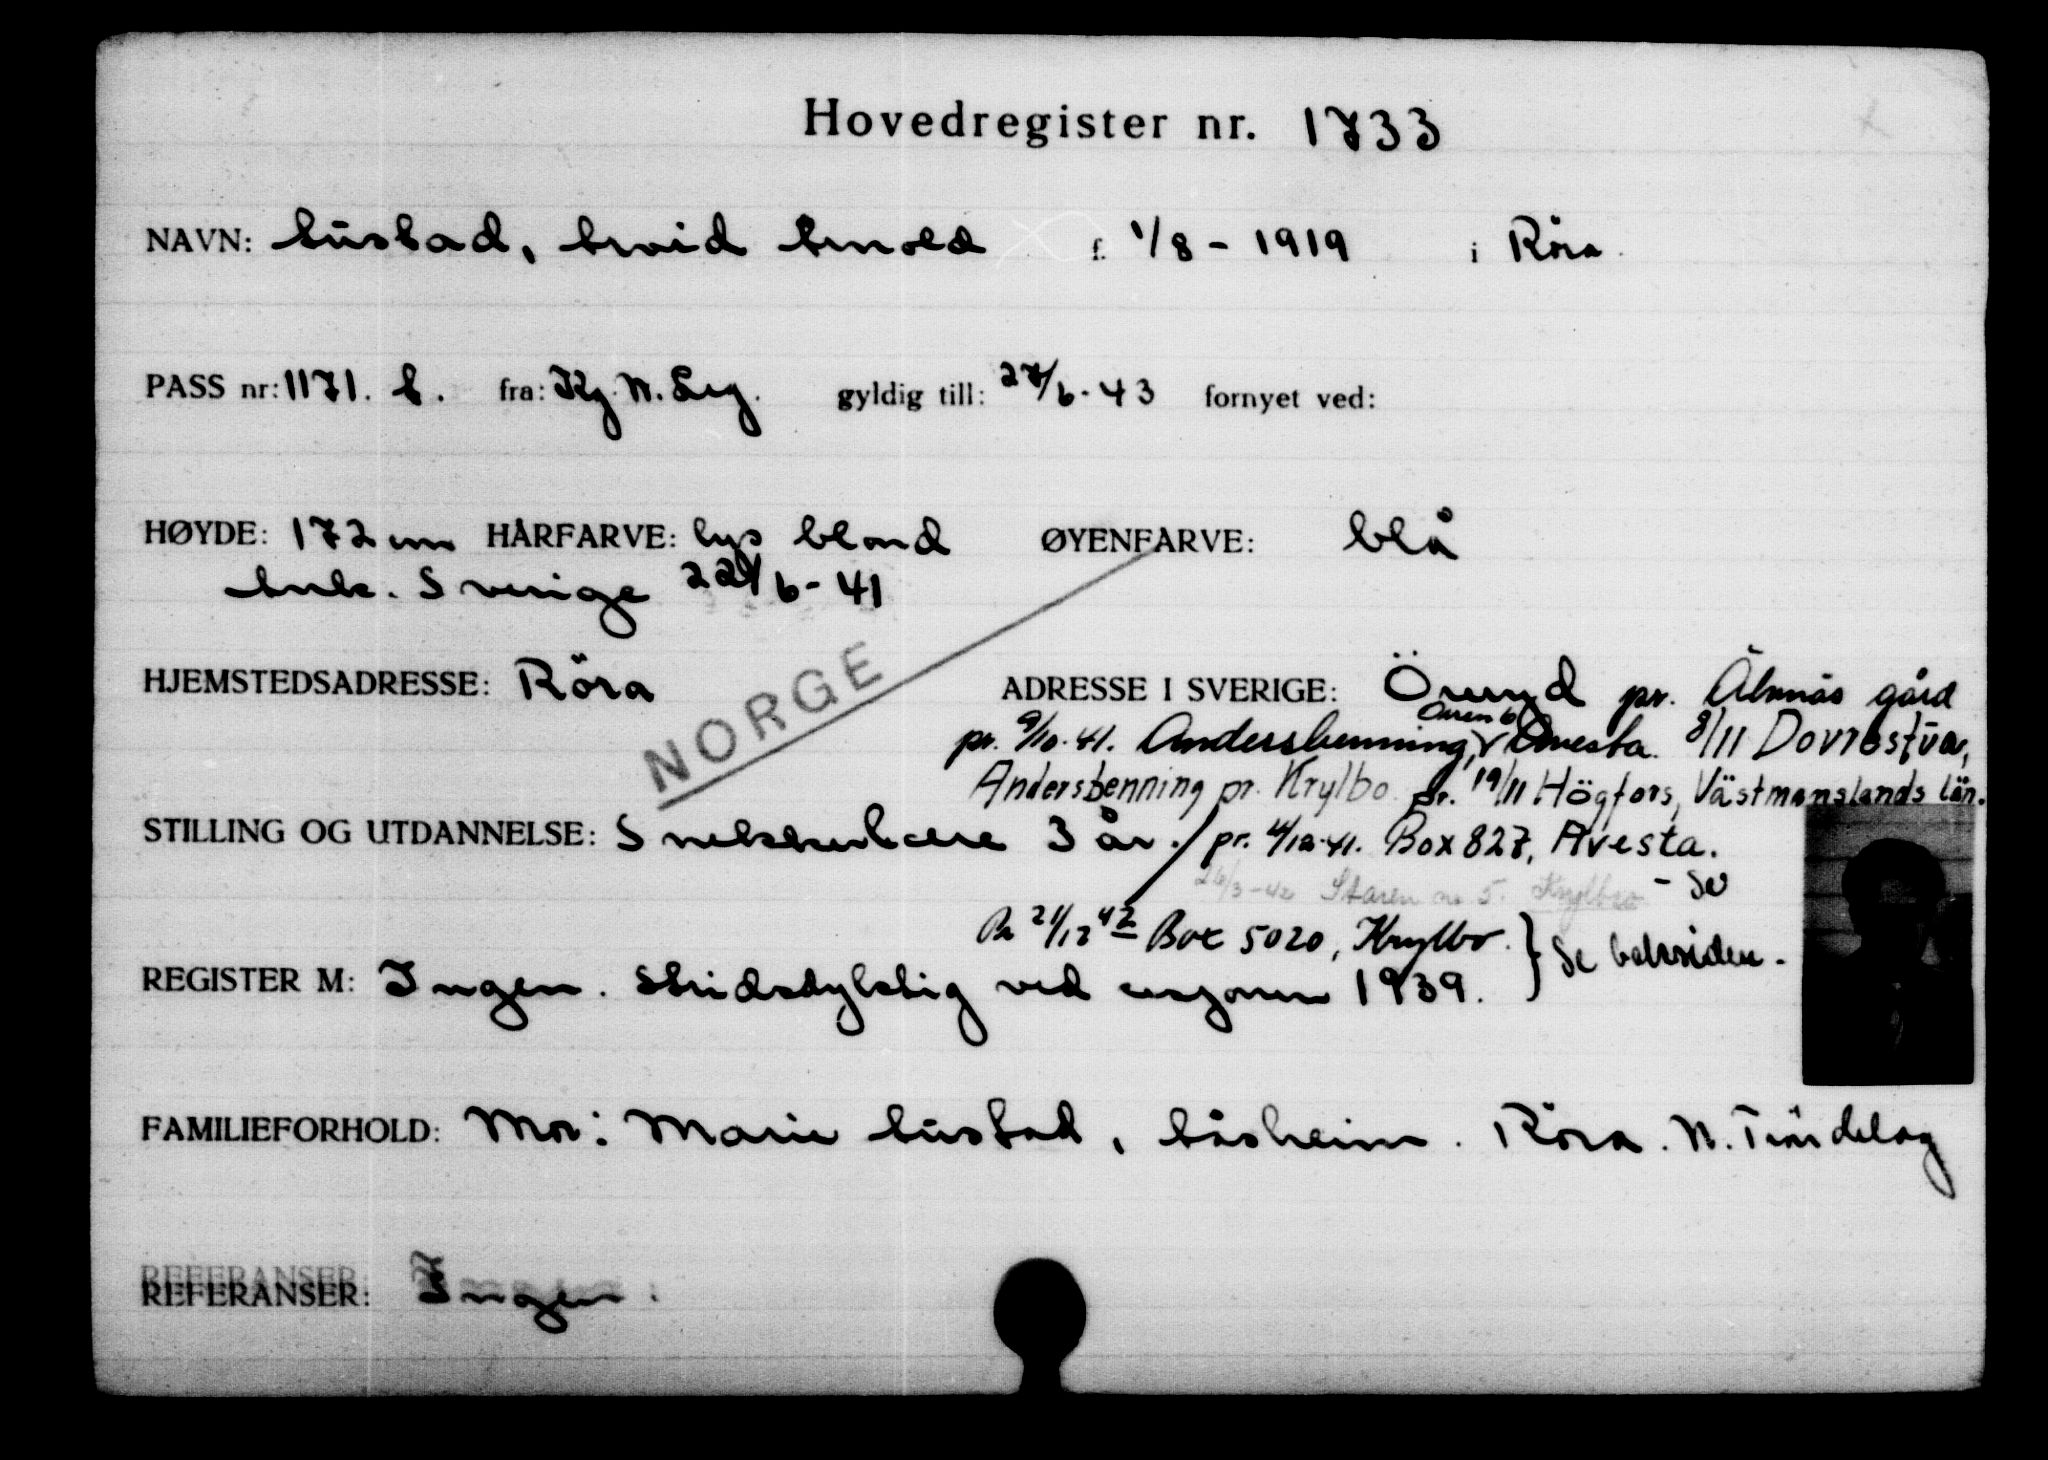 Hovedregister nr. 1733
NAVN: Austad, Arvid Arnold f. 1/8 - 1919 i Röra.
PASS nr: 1171. A. fra: Kg. N. Leg. gyldig till: 27/6-43 fornyet ved:
HØYDE: 172 cm HÅRFARVE: lys blond ØYENFARVE: blå
Ank. Sverige 22/6-41
NORGE
HJEMSTEDSADRESSE: Röra ADRESSE I SVERIGE: Öreryd pr. Älvnäs gård
pr. 9/10-41. Andersbenning, v Avesta. 8/11 Dovrestua,
Andersbenning pr. Krylbo. pr. 19/11 Högfors, Västmanslands län.
STILLING OG UTDANNELSE: Snekkerlære 3 år. / pr. 4/12-41. Box 827, Avesta.
26/3-42 Staren 5. Krylbo - Se
Pr 21/12 42 Box 5020, Krylbo. } Se baksiden.
REGISTER M: Ingen. Stridsdyktig ved sesjonen 1939.
FAMILIEFORHOLD: Mor: Marie Austad, Åsheim. Röra. N. Tröndelag
REFERANSER: Ingen.